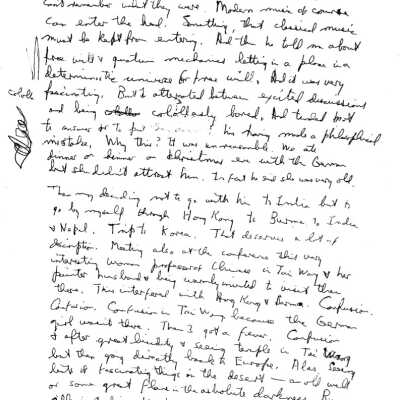 can't remember what they were. Modern music of course
can enter the head. Something, that classical music
must be kept from entering. And then he told me about
free will & quantum mechanics letting in a place in a
deterministic universe for free will. And it was very
fascinating. But I alternated between excited discussions
and being colossally bored, and tended
to answer or to his having made a philosophical
mistake. Why this? It was unreasonable. We ate
dinner or dinner on Christmas eve with the German
but she didn't attract him. In fact he said she was very old.
Then my deciding not to go with him to India but to
go by myself through Hong Kong to Burma to India
& Nepal. Trip to Korea. That deserves a lot of
description. Meeting also at the conference this very
interesting woman professor of Chinese in Tai Wan & her
painter husband & being warmly invited to visit them
there. This interfered with Hong Kong & Burma. Confusion.
Confusion. Confusion in Tai Wan because the German
girl wasn't there. Then I got a fever. Confusion
& after great & seeing temple in Tai Wan
but then going directly back to Europe. Alas, seeing
lots of fascinating things in the desert — an old well
or some great place in the absolute darkness.